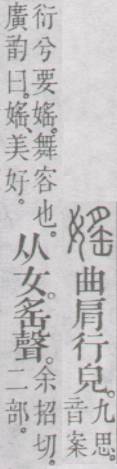 媱曲肩行皃。九思。
音案
衍兮要媱。舞容也。
廣韵曰。媱、美好。
从女。䍃聲。余招切。
二部。